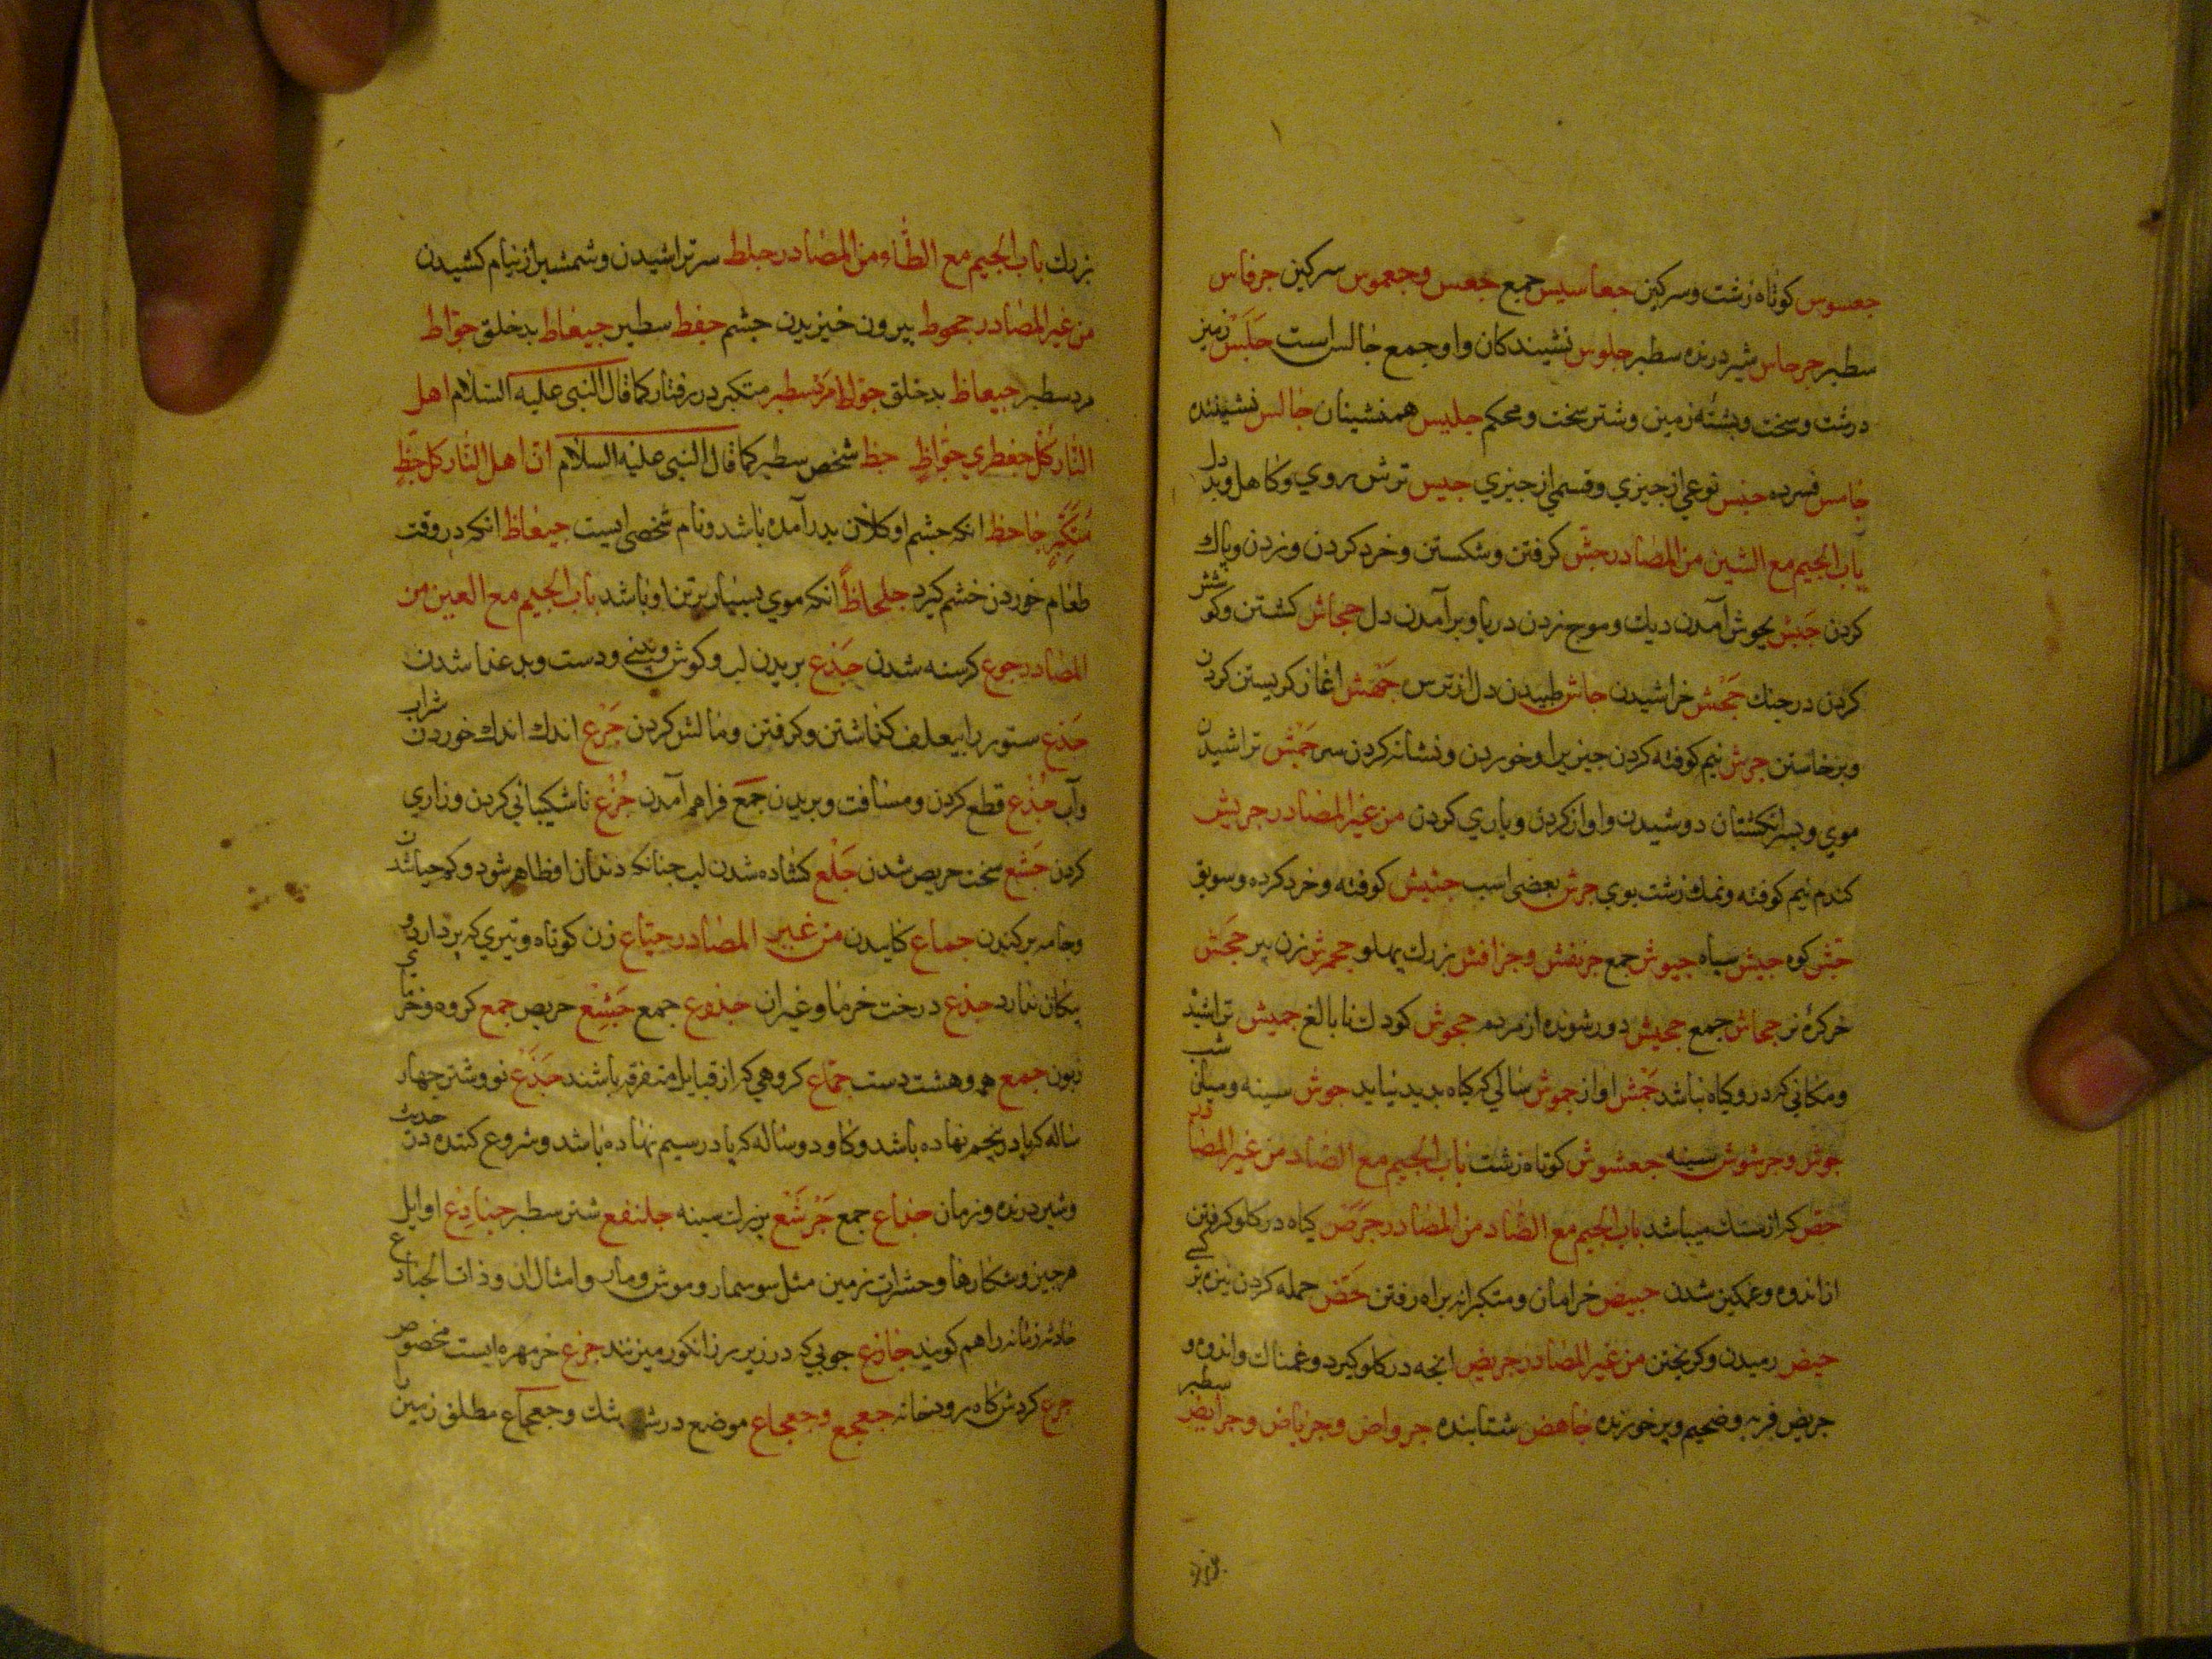 جعسوس كوتاه زشت وسركين جعاسيس جمع جعس وجعموس سركين جرفاس
سطبر جرجاس شير درنده سطبر جلوس نشيندكان واو جمع جالس است جلس زمين
درشت وسخت وپشته زمين وشتر سخت ومحكم جليس همنشينان جالس نشيننده
جامس فسرده جنس نوعي از چيزي وقسمي از چيزي جبس ترش روي وكاهل وبد دل
باب الجيم مع الشين من المصادر جش كرفتن وشكستن وخرد كردن وزدن وپاك
كردن جيش بجوش آمدن ديك وموج زدن دريا وبرآمدن دل جحاش كشتن وكوشش
كردن در جنك جحش خراشيدن جاش طپيدن دل از ترس جهش اغاز كريستن كردن
وبرخاستن جرش نيم كوفته كردن چيز يرا وخوردن ونشانه كردن سر جمش تراشيدن
موي وبسر انكشتان دوشيدن واواز كردن وياري كردن من غير المصادر جريش
كندم نيم كوفته ونمك زشت بوي جرش بعضي اسب جشيش كوفته وخرد كرده وسويق
كوه جيش سپاه جيوش جمع جرنفش وجرافش بزرك پهلو جحمرش زن پير جحش
خركرۀ نر جحاش جمع جحيش دور شونده از مردم جحوش كودك نابالغ جميش تراشيده
ومكاني كه درو كياه نباشد جمش اواز جموش سالي كه كياه پديد نيايد جوش سينه وميان شب
جوش وجرشوش سينه جعشوش كوتاه زشت باب الجيم مع الصاد من غير المصادر
جص كه از سنك ميباشد باب الجيم مع الضاد من المصادر جرض كياه در كلو كرفتن
از اندوه وغمكين شدن جيض خرامان ومتكبرانه براه رفتن جض حمله كردن نيزه بر كسي
جيض رميدن وكريختن من غير المصادر جريض انچه در كلو كيرد وغمناك واندوه و
جريض فربه وضخيم وپرخورنده جاهض شتابنده جرواض وجرياض وجرايض سطبر
بزرك باب الجيم مع الطاء من المصادر جلط سر تراشيدن وشمشير از نيام كشيدن
من غير المصادر جحوظ بيرون خيزيدن چشم جفظ سطبر جيعاظ بدخلق جواظ
مرد سطبر جيعاظ بدخلق جواظ مرد سطبر متكبر در رفتار كما قال النبي عليه السلام اهل
النار كل جعظري جواظ جظ شخص سطبر كما قال النبي عليه السلام ان اهل النار كل جظ
متكبر جاحظ انكه چشم او كلان بدر آمده باشد ونام شخصي ايست جيعاظ انكه در وقت
طعام خوردن خشم كيرد جلحاظ انكه موي بسيار بر تن او باشد باب الجيم مع العين من
المصادر جوع كرسنه شدن جدع بريدن لب وكوش وبيني ودست وبد غذا شدن
جذع ستور را بيعلف كذاشتن وكرفتن ومالش كردن جرع اندك اندك خوردن شراب
وآب جزع قطع كردن ومسافت وبريدن جمع فراهم آمدن جزع ناشكيبائي كردن وزاري
كردن جشع سخت حريص شدن جلع كشاده شدن لب چنانكه دندان او ظاهر شود وكم حيا شدن
وجامه بركندن جماع كاييدن من غير المصادر جباع زن كوتاه وتيري كه پر دارد و
پيكان ندارد جذع درخت خرما وغير ان جذوع جمع جشع حريص جمع كروه وخرماي
زبون جمع همه وهشت دست جماع كروهي كه از قبايل متفرقه باشند جذع نو وشتر چهار
ساله كه پا در پنجم نهاده باشد وكاو دو ساله كه پا در سيم نهاده باشد وشروع كننده در حديث
وشير درنده وزمان جذاع جمع جرشع بزرك سينه جلنفع شتر سطبر جنادع اوايل
هر چيز وشكارها وحشرات زمين مثل سوسمار وموش ومار وامثال ان وذات الجنادع
حادثه زمانه را هم كويند جازع چوبي كه در زير رز انكور ميزنند جزع خرمهره ايست مخصوص
جزع كردش كاه رودخانه جعجع وجعجاع موضع درشت وجعجاع مطلق زمين را